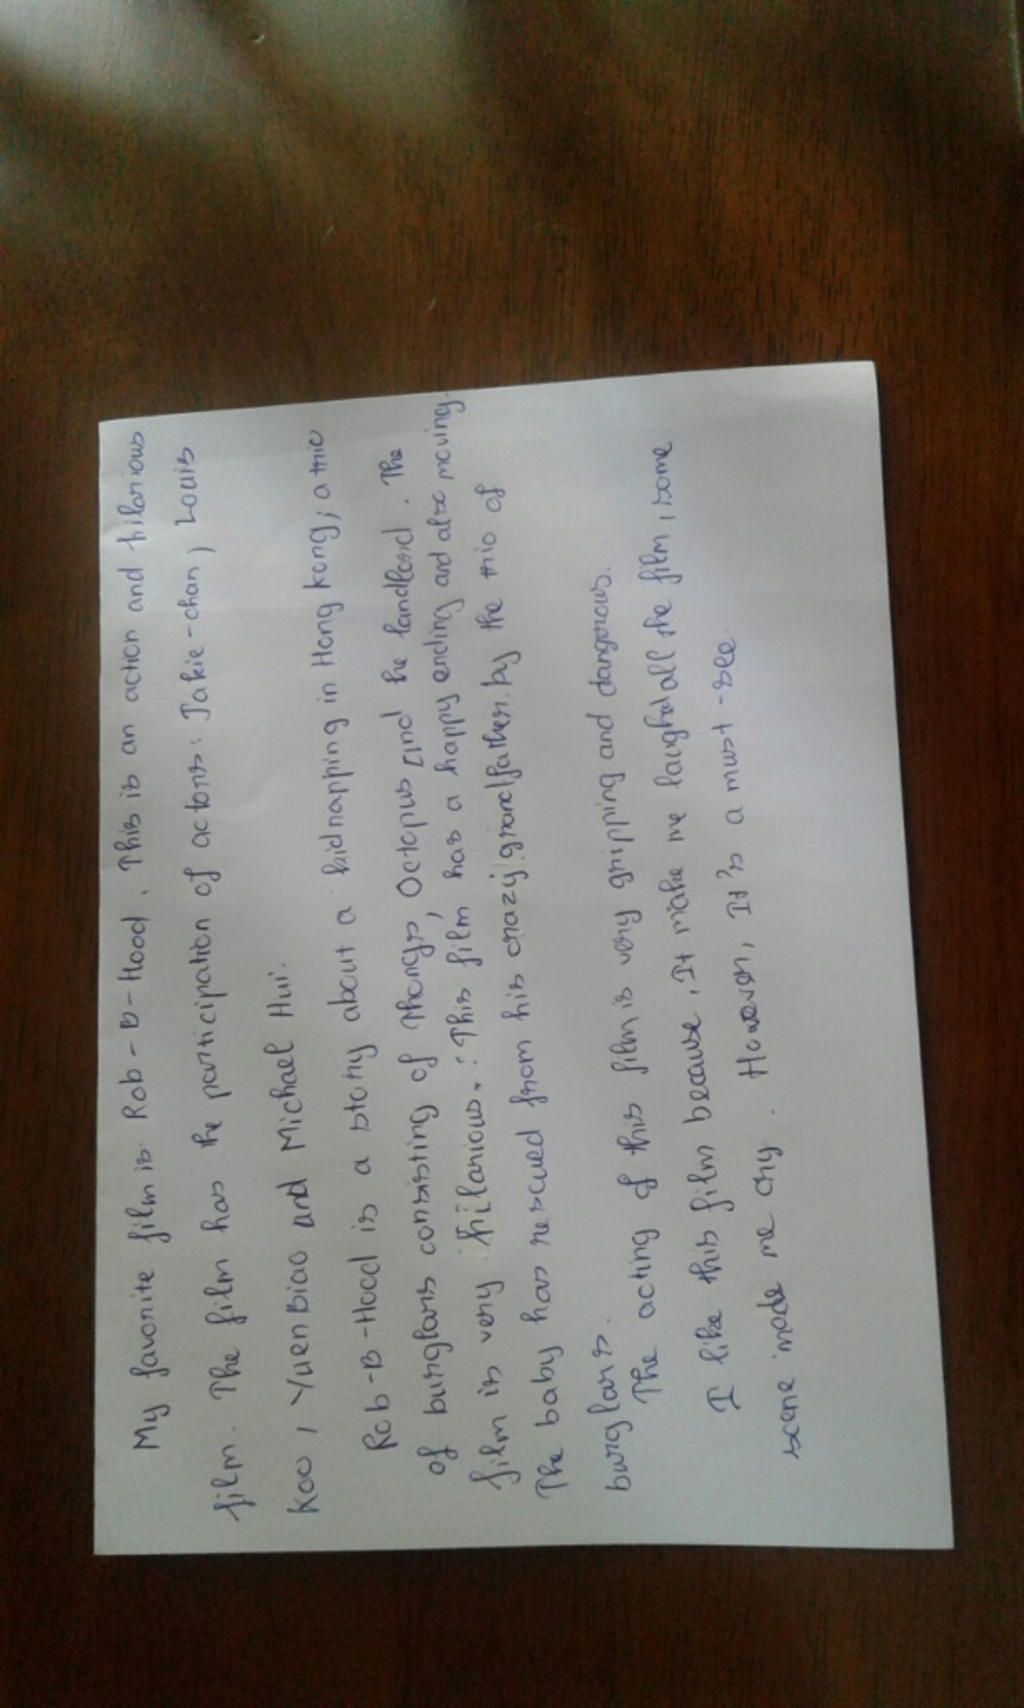 My favorite film is Rob-B-Hood. This is an action and hilarious
film. The film has the participation of actors: Jakie-chan, Louis
Koo, Yuen Biao and Michael Hui.
Rob-B-Hood is a story about a kidnapping in Hong Kong; a trio
of burglars consisting of Thongs, Octopus and the landlord. The
film is very hilarious. This film has a happy ending and also moving.
The baby has rescued from his crazy grandfather by the trio of
burglars.
The acting of this film is very gripping and dangerous.
I like this film because, It make me laughed all the film, some
scene made me cry. However, It's a must-see.